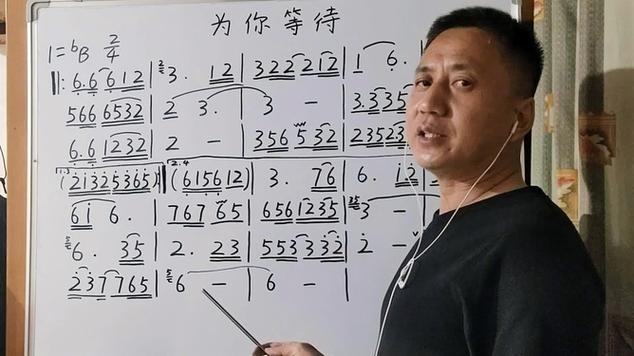 为你等待
1=ᵇB 2/4
‖: 6.6 612 | 3. 12 | 322 212 | 1 6.
566 6532 | 2 3. | 3 - | 3.335
6.6 1232 | 2 - | 356 532 | 23523
(21325365) ‖ (615612) | 3. 76 | 6. 12
61 6. | 767 65 | 656 1235 | 3 -
6. 35 | 2. 23 | 553 332 | 2 -
237765 | 6 - | 6 - |